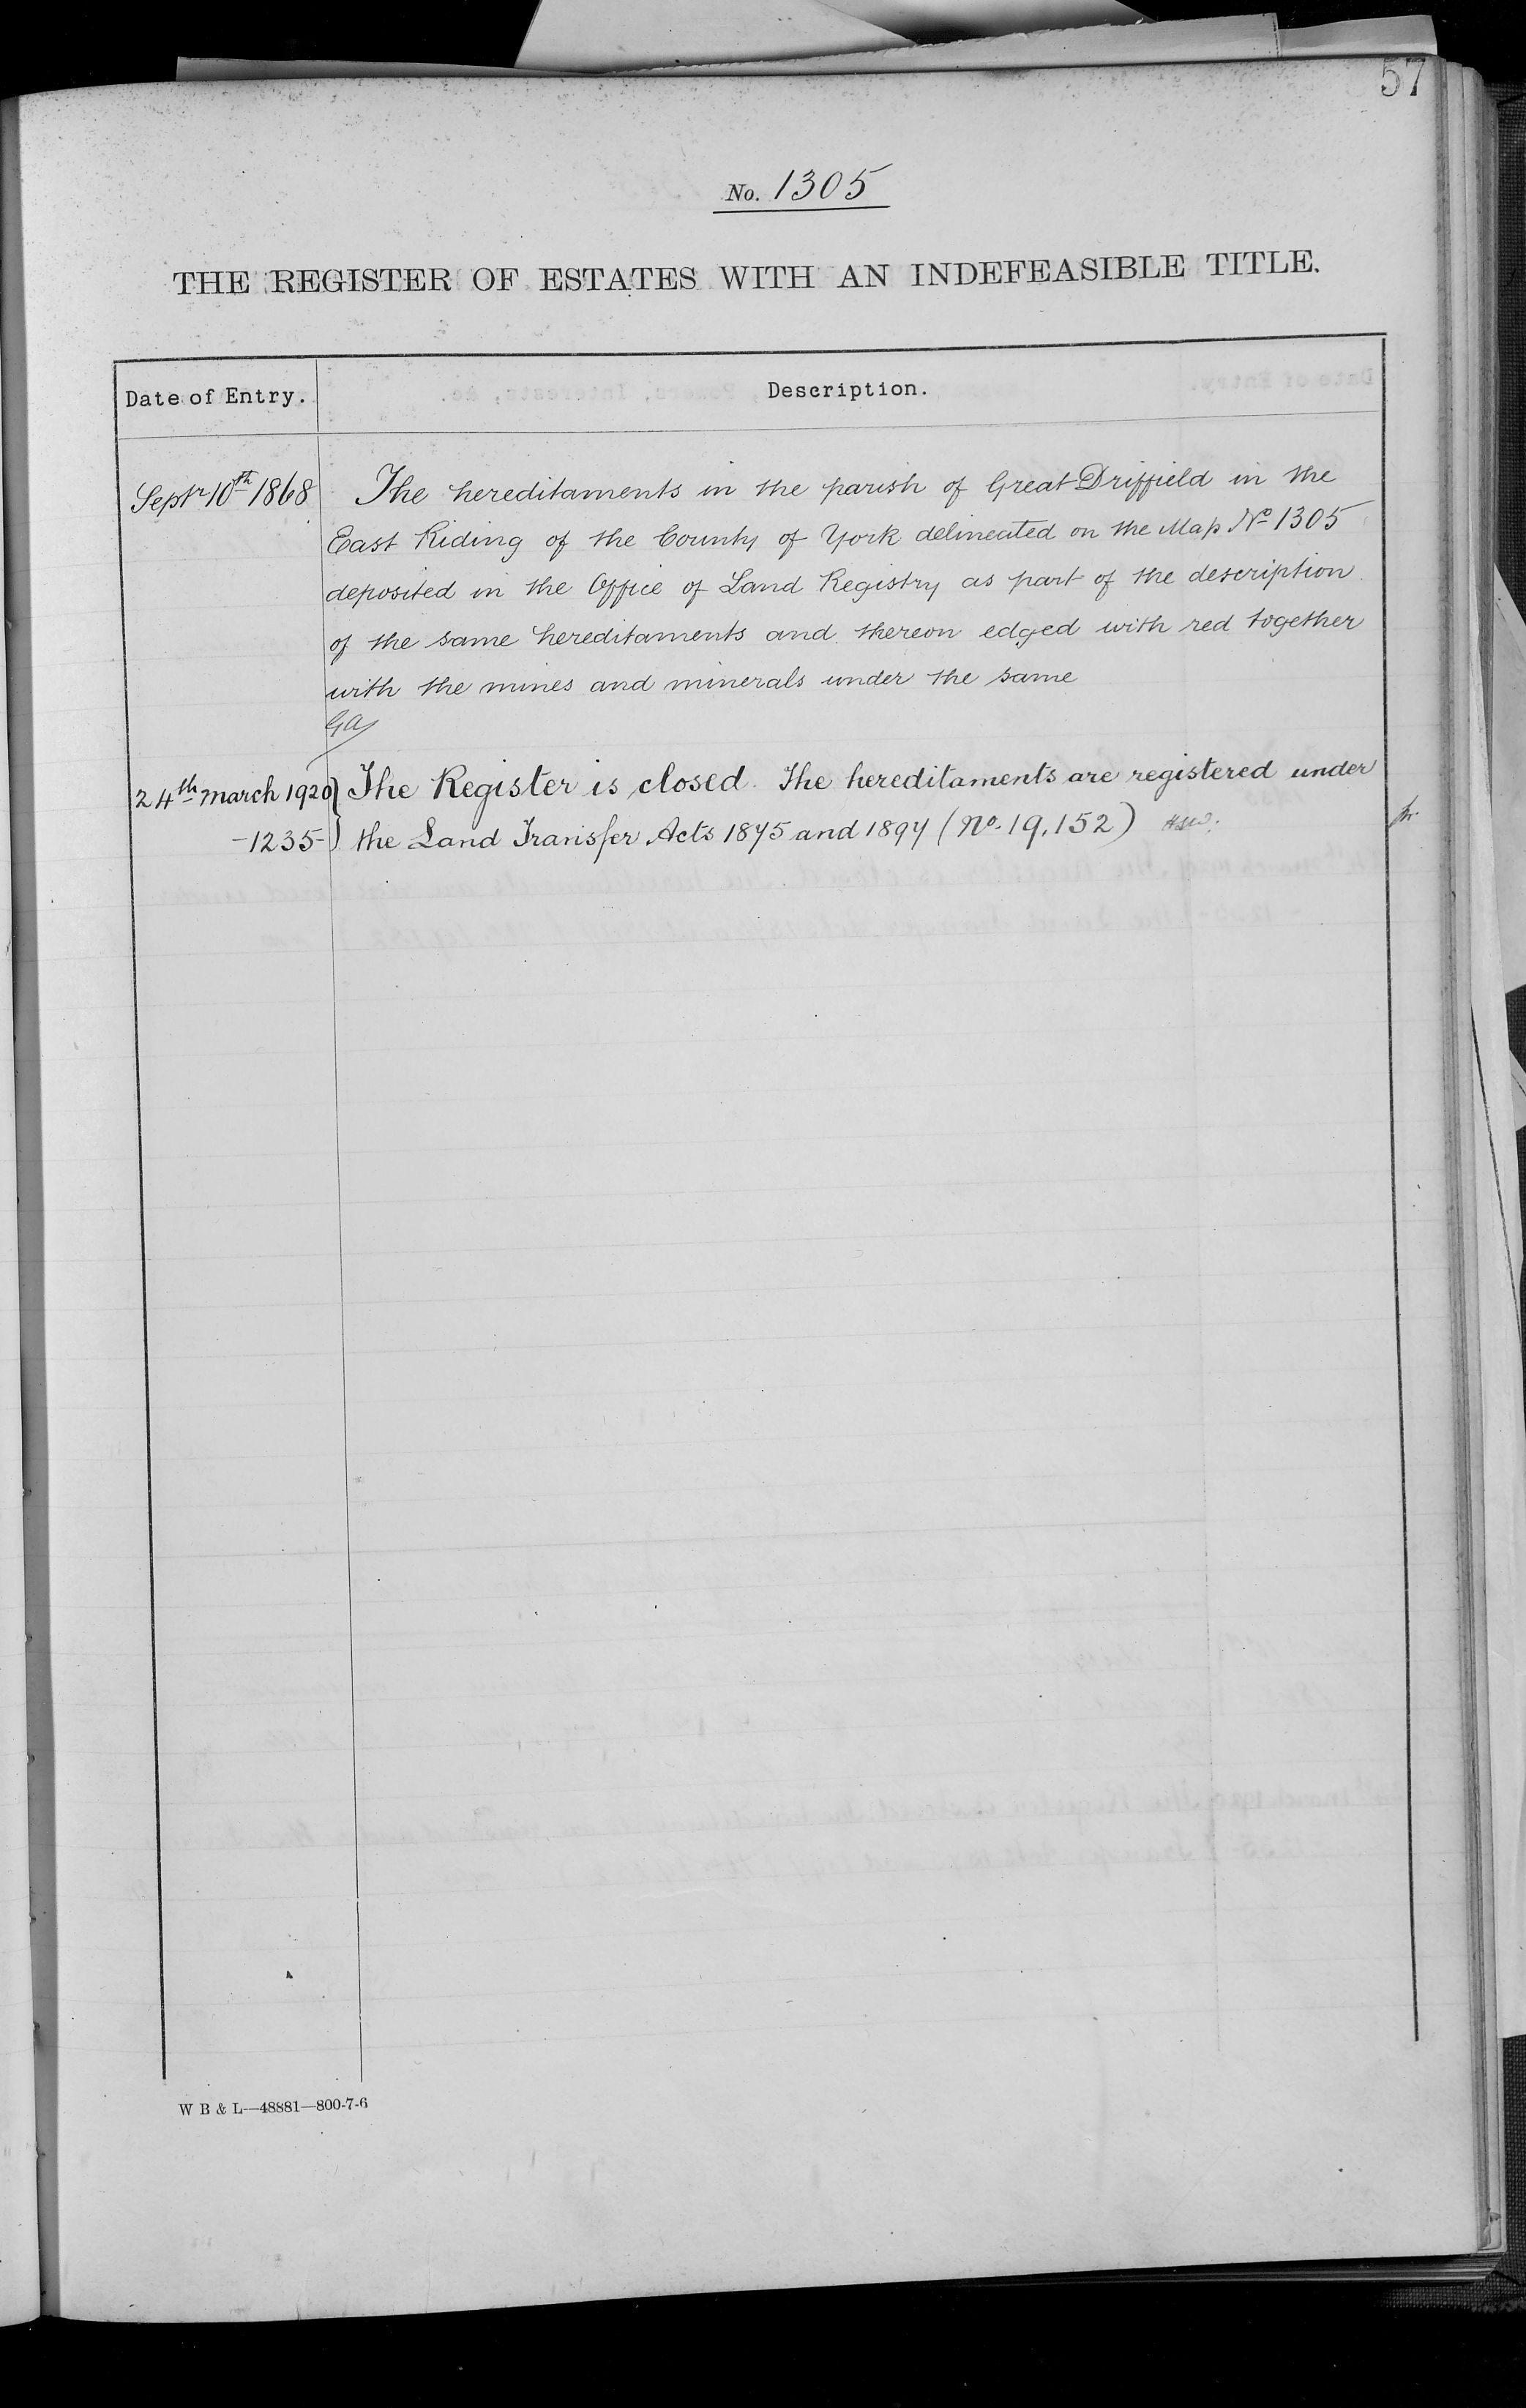 57
No. 1305
THE REGISTER OF ESTATES WITH AN INDEFEASIBLE TITLE.
Date of Entry. Description.
Septr 10th 1868 The hereditaments in the parish of Great Driffield in the
East Riding of the County of York delineated on the Map No 1305
deposited in the Office of Land Registry as part of the description
of the same hereditaments and thereon edged with red together
with the mines and minerals under the same
GA
24th March 1920 The Register is closed. The hereditaments are registered under
-1235- the Land Transfer Acts 1875 and 1897 (No. 19,152) HSW.
W B & L—48881—800-7-6